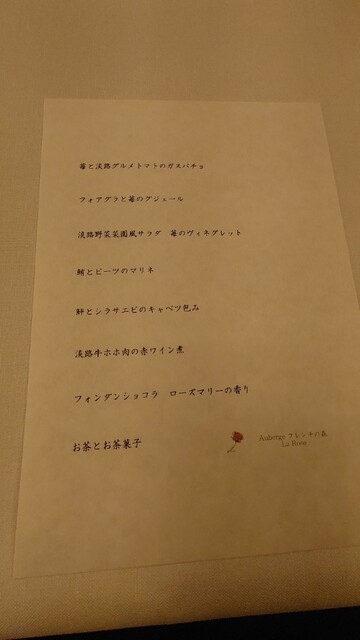 苺と淡路グルメトマトのガスパチョ
フォアグラと苺のグジェール
淡路野菜菜園風サラダ　苺のヴィネグレット
鮪とビーツのマリネ
鮃とシラサエビのキャベツ包み
淡路牛ホホ肉の赤ワイン煮
フォンダンショコラ　ローズマリーの香り
お茶とお茶菓子
Auberge フレンチの森
La Rose